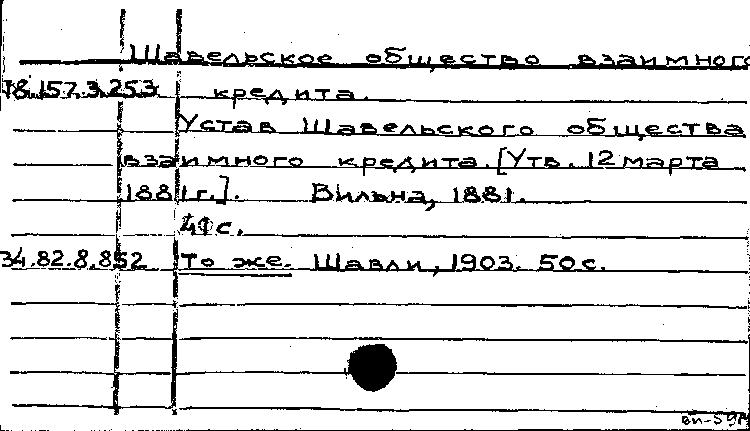 Шавельское общество взаимного
18.157.3.253 кредита.
Устав Шавельского общества
взаимного кредита. [Утв. 12 марта
1881 г.]. Вильна, 1881.
41 с.
34.82.8.852 То же. Шавли, 1903. 50 с.